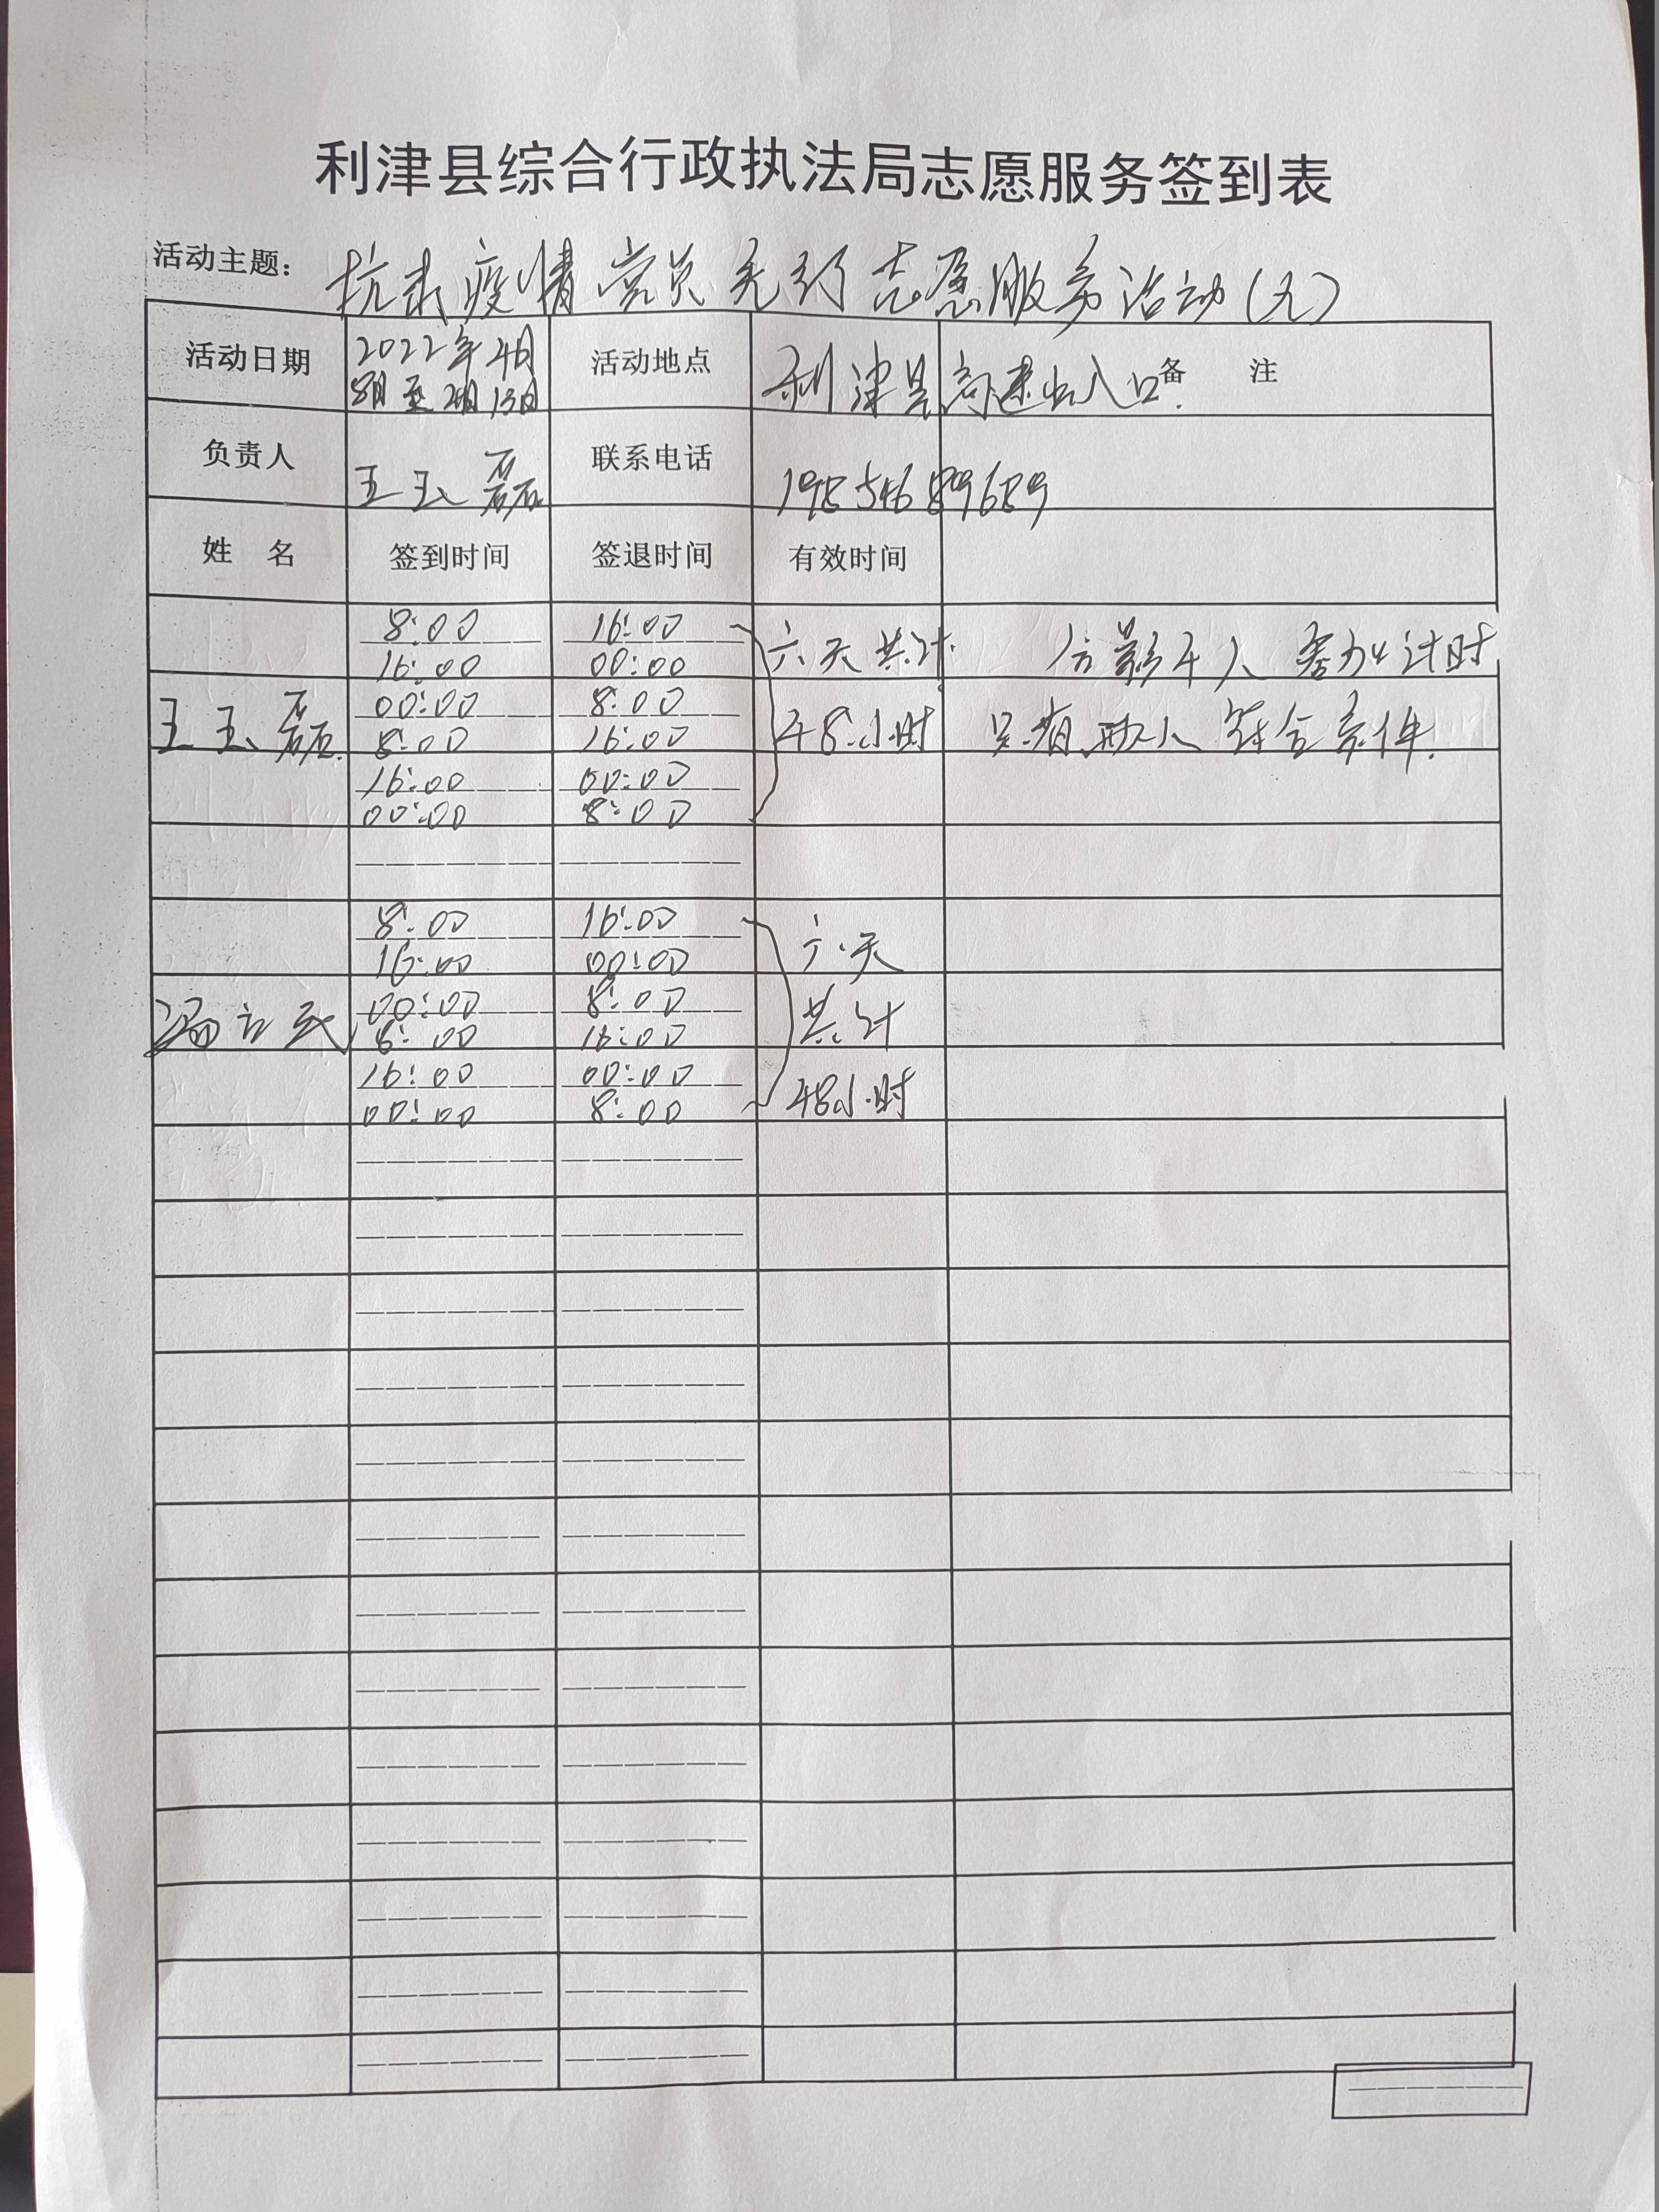 利津县综合行政执法局志愿服务签到表
活动主题：抗击疫情党员先行志愿服务活动（九）
活动日期 2022年4月 活动地点 利津县高速出入口. 备 注
8日至4月13日
负责人 王玉磊 联系电话 19854689689
姓 名 签到时间 签退时间 有效时间
8:00 16:00 六天共计
16:00 00:00
王玉磊 00:00 8:00 48小时 只有两人符合条件.
8:00 16:00
16:00 00:00
00:00 8:00
8:00 16:00 六天
16:00 00:00
00:00 8:00 共计
8:00 16:00
16:00 00:00 48小时
00:00 8:00